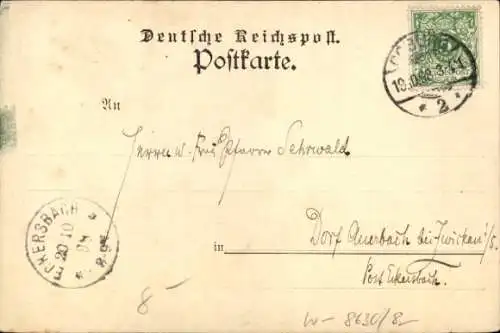 Deutsche Reichspost.
Postkarte.
COBURG
19.10.98. 3-4 N
* 2 *
An
Herrn u. Frau Pfarrer Sehrwald
ECKERSBACH
20 10
98
8-9V
in Dorf Auerbach bei Zwickau i/S.
Post Eckersbach.
8-
W- 8630/8